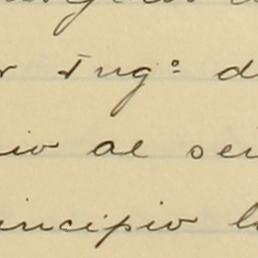 r Ingº d
io al sei
incipio l